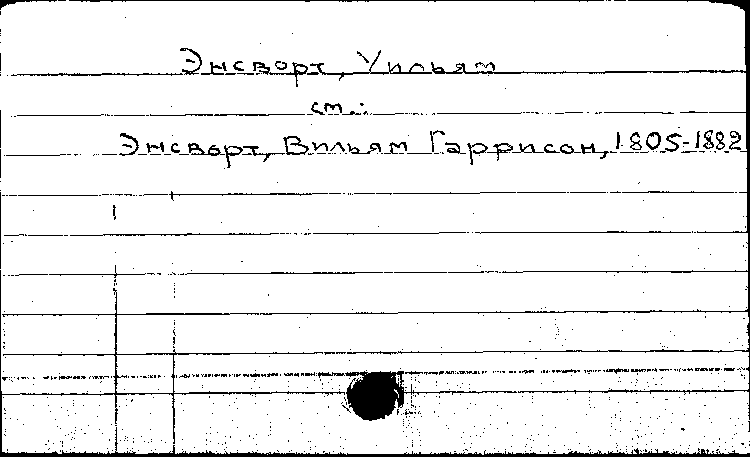 Энсворт, Уильям
см.:
Энсворт, Вильям Гаррисон, 1805-1882